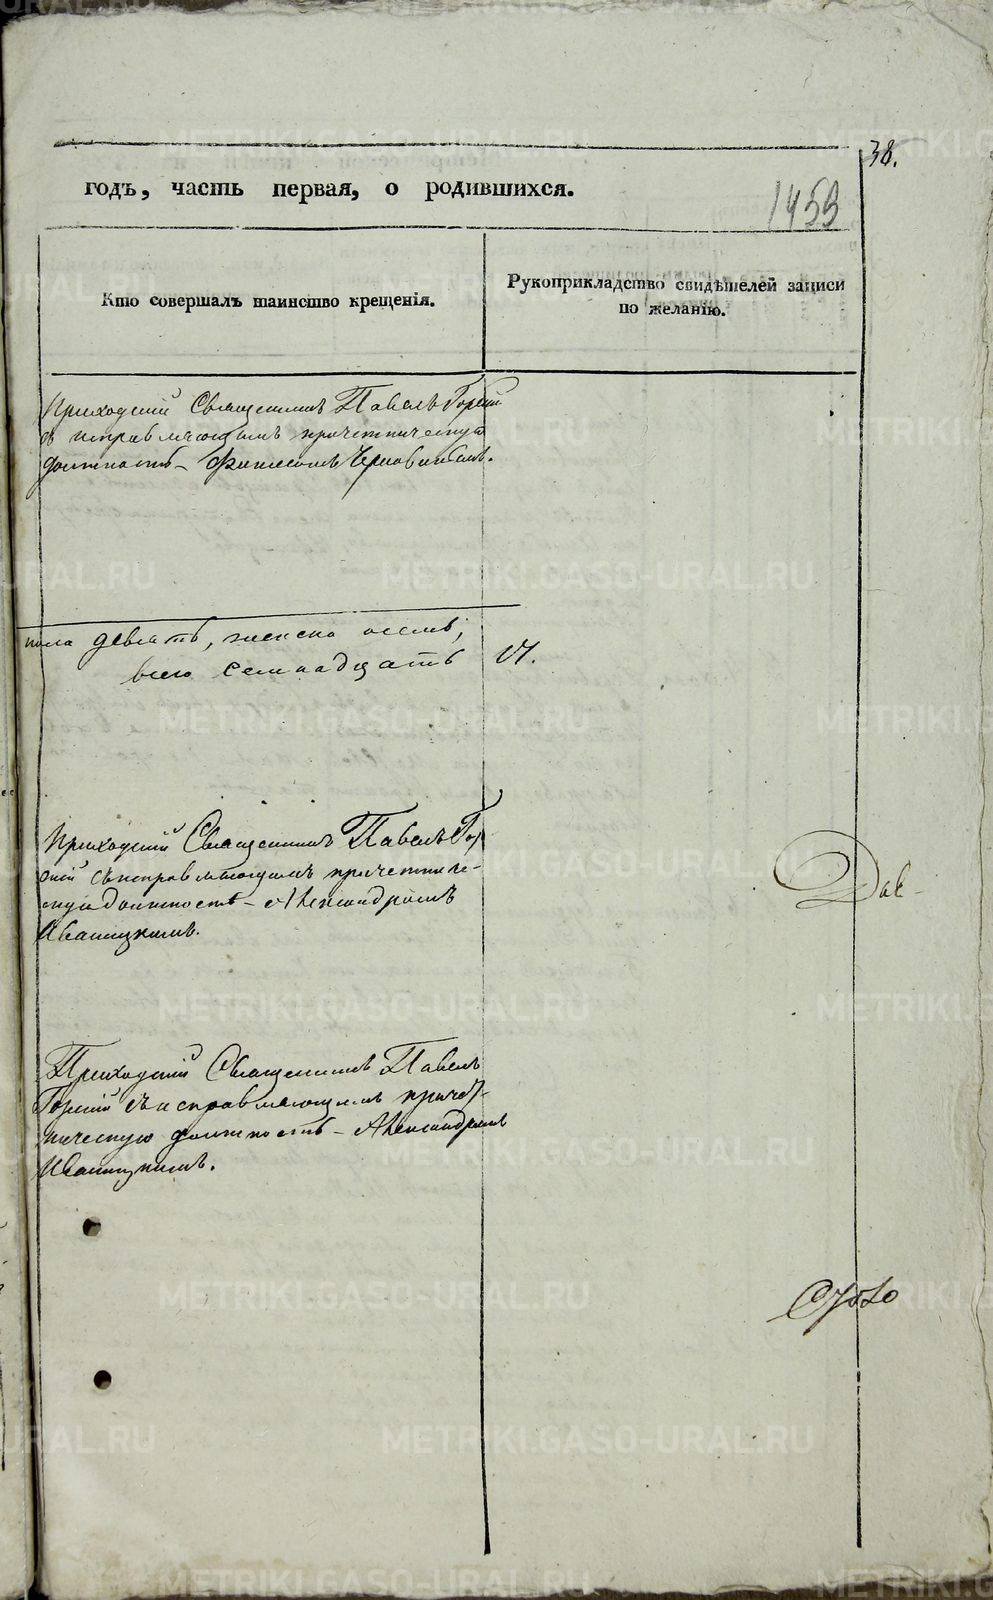 38.
годъ, часть первая, о родившихся.
1453
Кто совершалъ таинство крещенія.
Рукоприкладство свидѣтелей записи
по желанію.
Приходскій Священникъ Павелъ Горскій
съ исправляющимъ причетническую
должность
пола девять, женска осемь,
всего семнадцать 17.
Приходскій Священникъ Павелъ Гор
скій съ исправляющимъ причетниче-
скую должность – Александромъ
Иваницкимъ.
Дак-
Приходскій Священникъ Павелъ
Горскій съ исправляющимъ причет-
ническую должность – Александромъ
Иваницкимъ.
METRIKI.GASO-URAL.RU